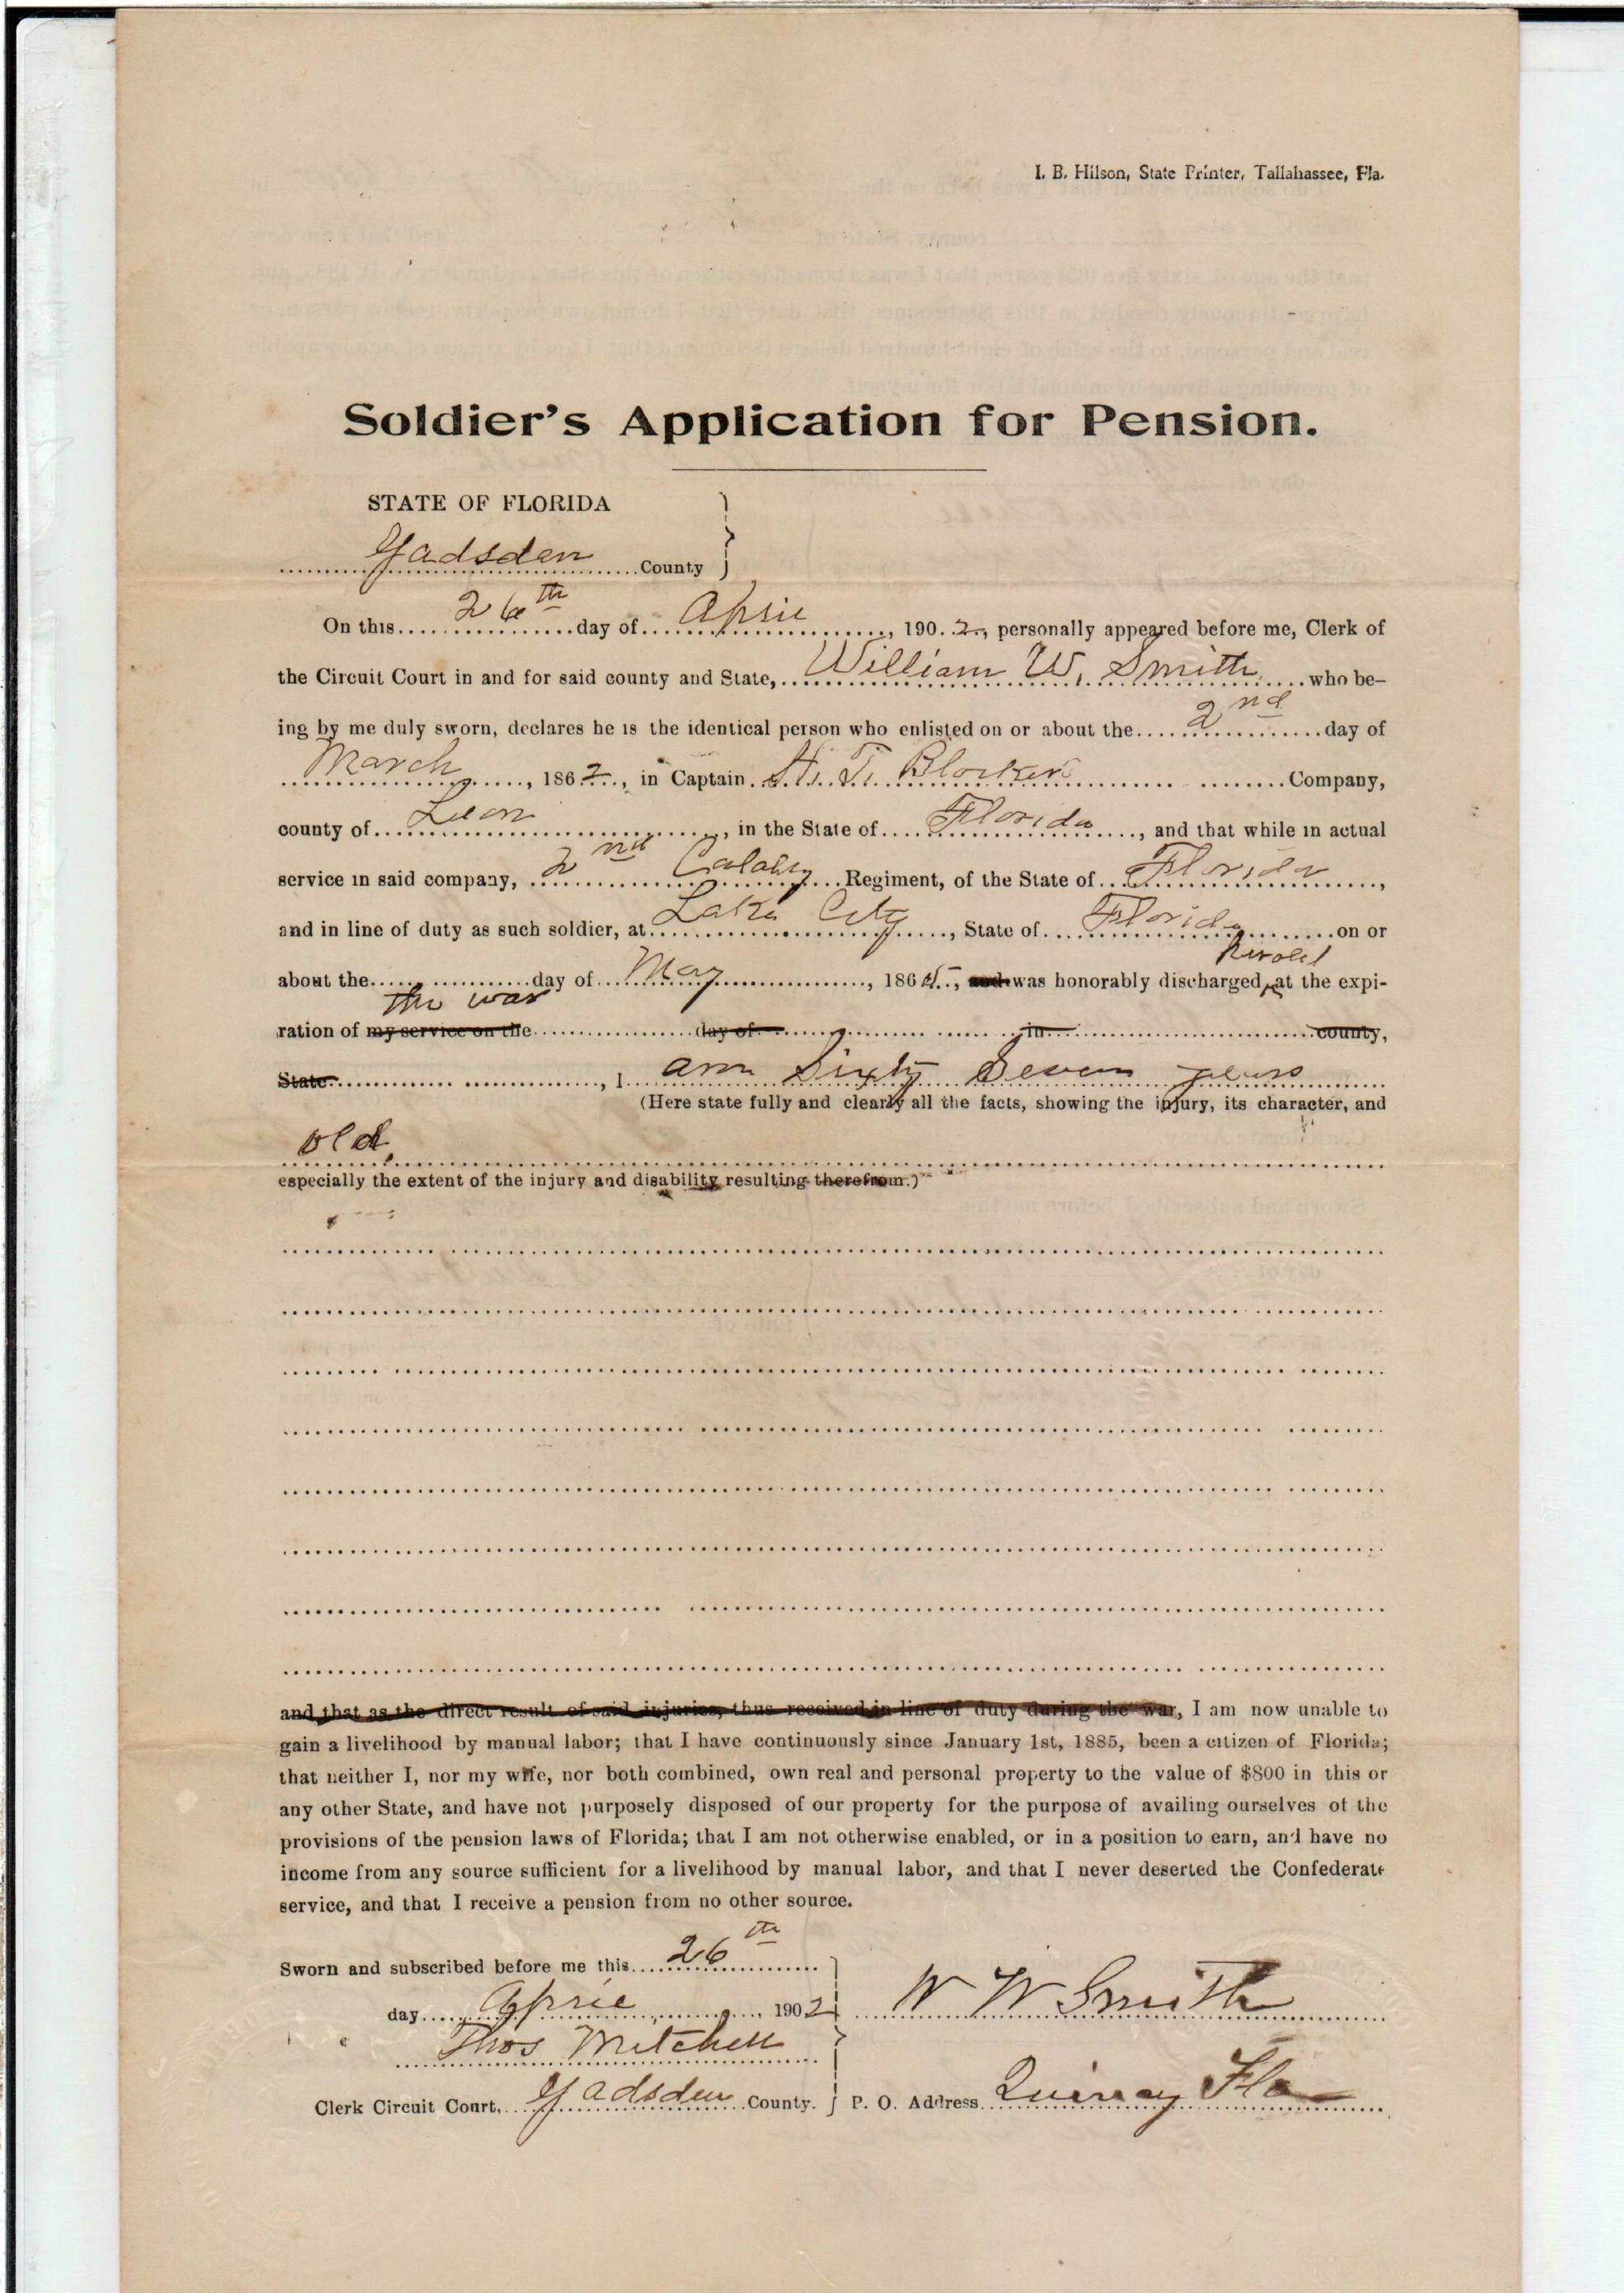 I. B. Hilson, State Printer, Tallahassee, Fla.
Soldier's Application for Pension.
STATE OF FLORIDA
Gadsden County
On this 26th day of April, 1902, personally appeared before me, Clerk of
the Circuit Court in and for said county and State, William W. Smith who be-
ing by me duly sworn, declares he is the identical person who enlisted on or about the 2nd day of
March, 1862, in Captain H. T. Blockers Company,
county of Leon, in the State of Florida, and that while in actual
service in said company, 2nd Calalry Regiment, of the State of Florida,
and in line of duty as such soldier, at Lake City, State of Florida on or
about the day of May, 1865, and was honorably discharged, at the expi-
the war
ration of my service on the day of in county,
State, I am Sixty Seven years
(Here state fully and clearly all the facts, showing the injury, its character, and
old.
especially the extent of the injury and disability resulting therefrom.)
and that as the direct result of said injuries, thus received in line of duty during the war, I am now unable to
gain a livelihood by manual labor; that I have continuously since January 1st, 1885, been a citizen of Florida;
that neither I, nor my wife, nor both combined, own real and personal property to the value of $800 in this or
any other State, and have not purposely disposed of our property for the purpose of availing ourselves of the
provisions of the pension laws of Florida; that I am not otherwise enabled, or in a position to earn, and have no
income from any source sufficient for a livelihood by manual labor, and that I never deserted the Confederate
service, and that I receive a pension from no other source.
Sworn and subscribed before me this 26th
day April, 1902 W W Smith
Thos Mitchell
Clerk Circuit Court, Gadsden County. P. O. Address Quincy Fla